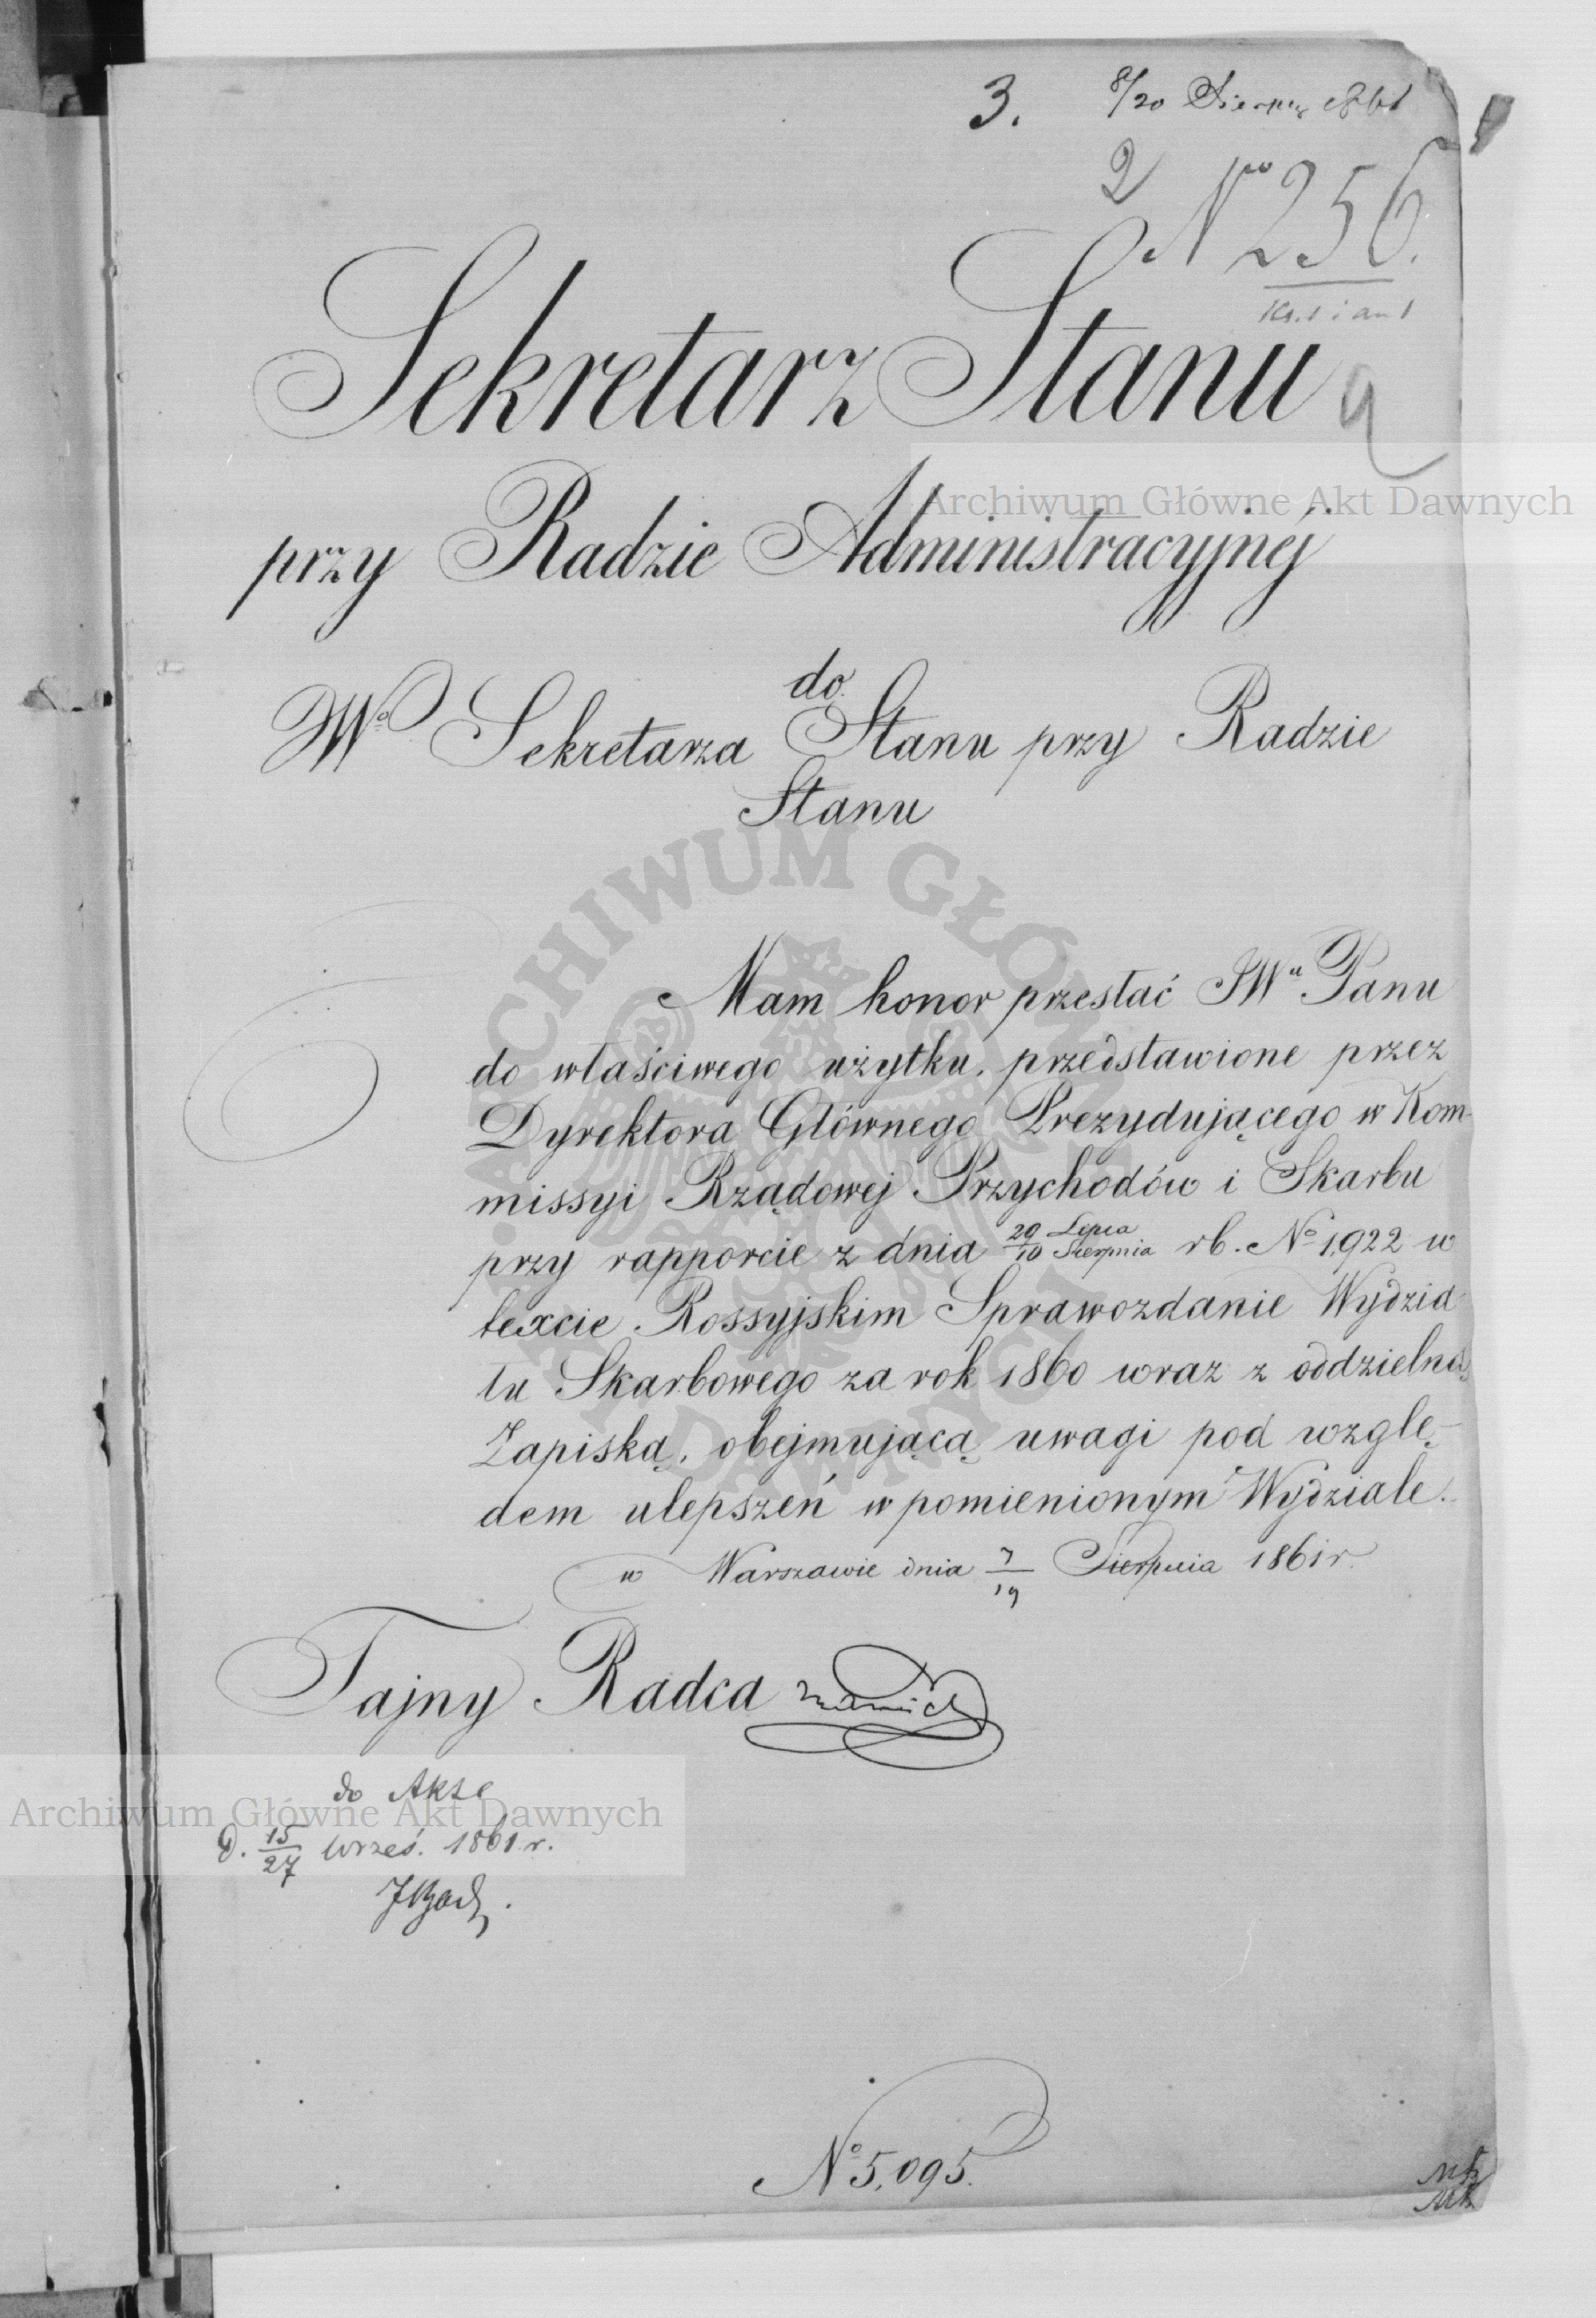 3. 8/20 Sierp. 1861
2 No 256.
a
Sekretarz Stanu
przy Radzie Administracyjnéj
do
JWo Sekretarza Stanu przy Radzie
Stanu
Mam honor przesłać JWu Panu
do właściwego użytku, przedstawione przez
Dyrektora Głównego Prezydującego w Kom-
missyi Rządowej Przychodów i Skarbu
przy rapporcie z dnia 29 Lipca/10 Sierpnia rb. No 1,922 w
texcie Rossyjskim Sprawozdanie Wydzia-
łu Skarbowego za rok 1860 wraz z oddzielną
Zapiską, obejmującą uwagi pod wzglę-
dem ulepszeń w pomienionym Wydziale.
w Warszawie dnia 7/19 Sierpnia 1861 r.
Tajny Radca
do Akt
D. 15/27 Wrześ. 1861 r.
No 5,095.
Archiwum Główne Akt Dawnych
Archiwum Główne Akt Dawnych
ARCHIWUM GŁÓWNE AKT DAWNYCH